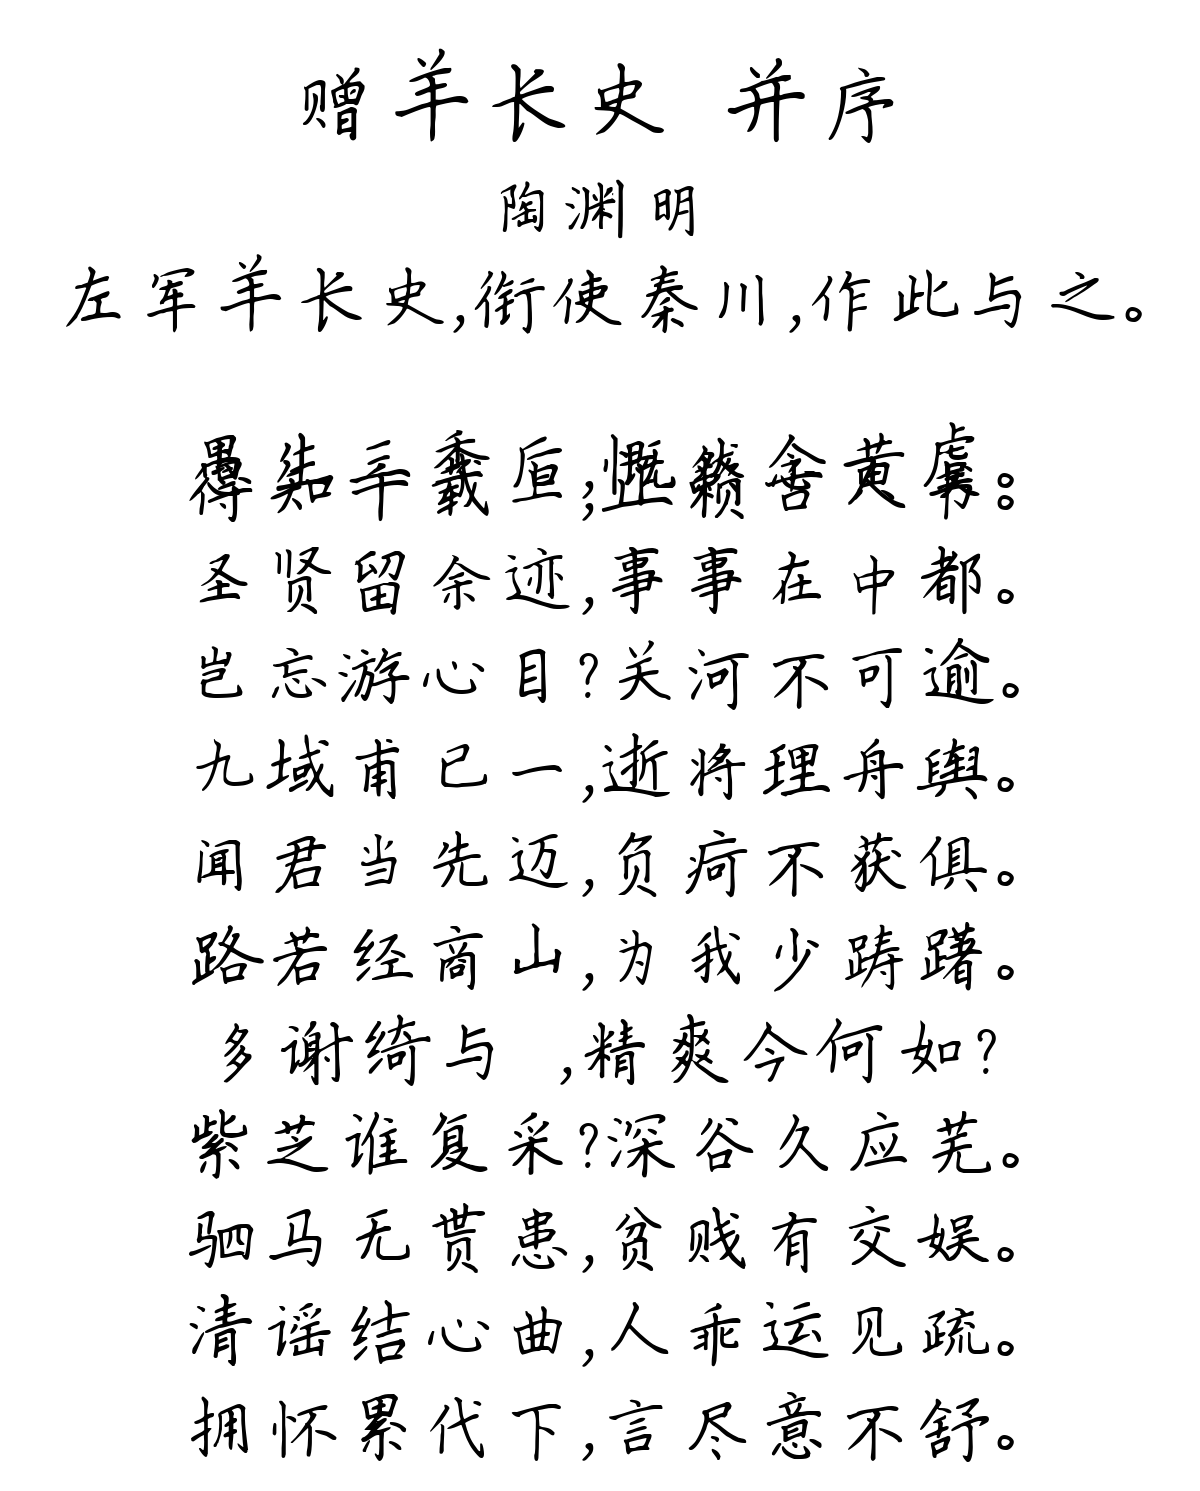 赠羊长史 并序
陶渊明
左军羊长史,衔使秦川,作此与之。
愚生三季后,慨然念黄虞。
得知千载上,正赖古人书。
圣贤留余迹,事事在中都。
岂忘游心目?关河不可逾。
九域甫已一,逝将理舟舆。
闻君当先迈,负疴不获俱。
路若经商山,为我少踌躇。
多谢绮与 ,精爽今何如?
紫芝谁复采?深谷久应芜。
驷马无贳患,贫贱有交娱。
清谣结心曲,人乖运见疏。
拥怀累代下,言尽意不舒。